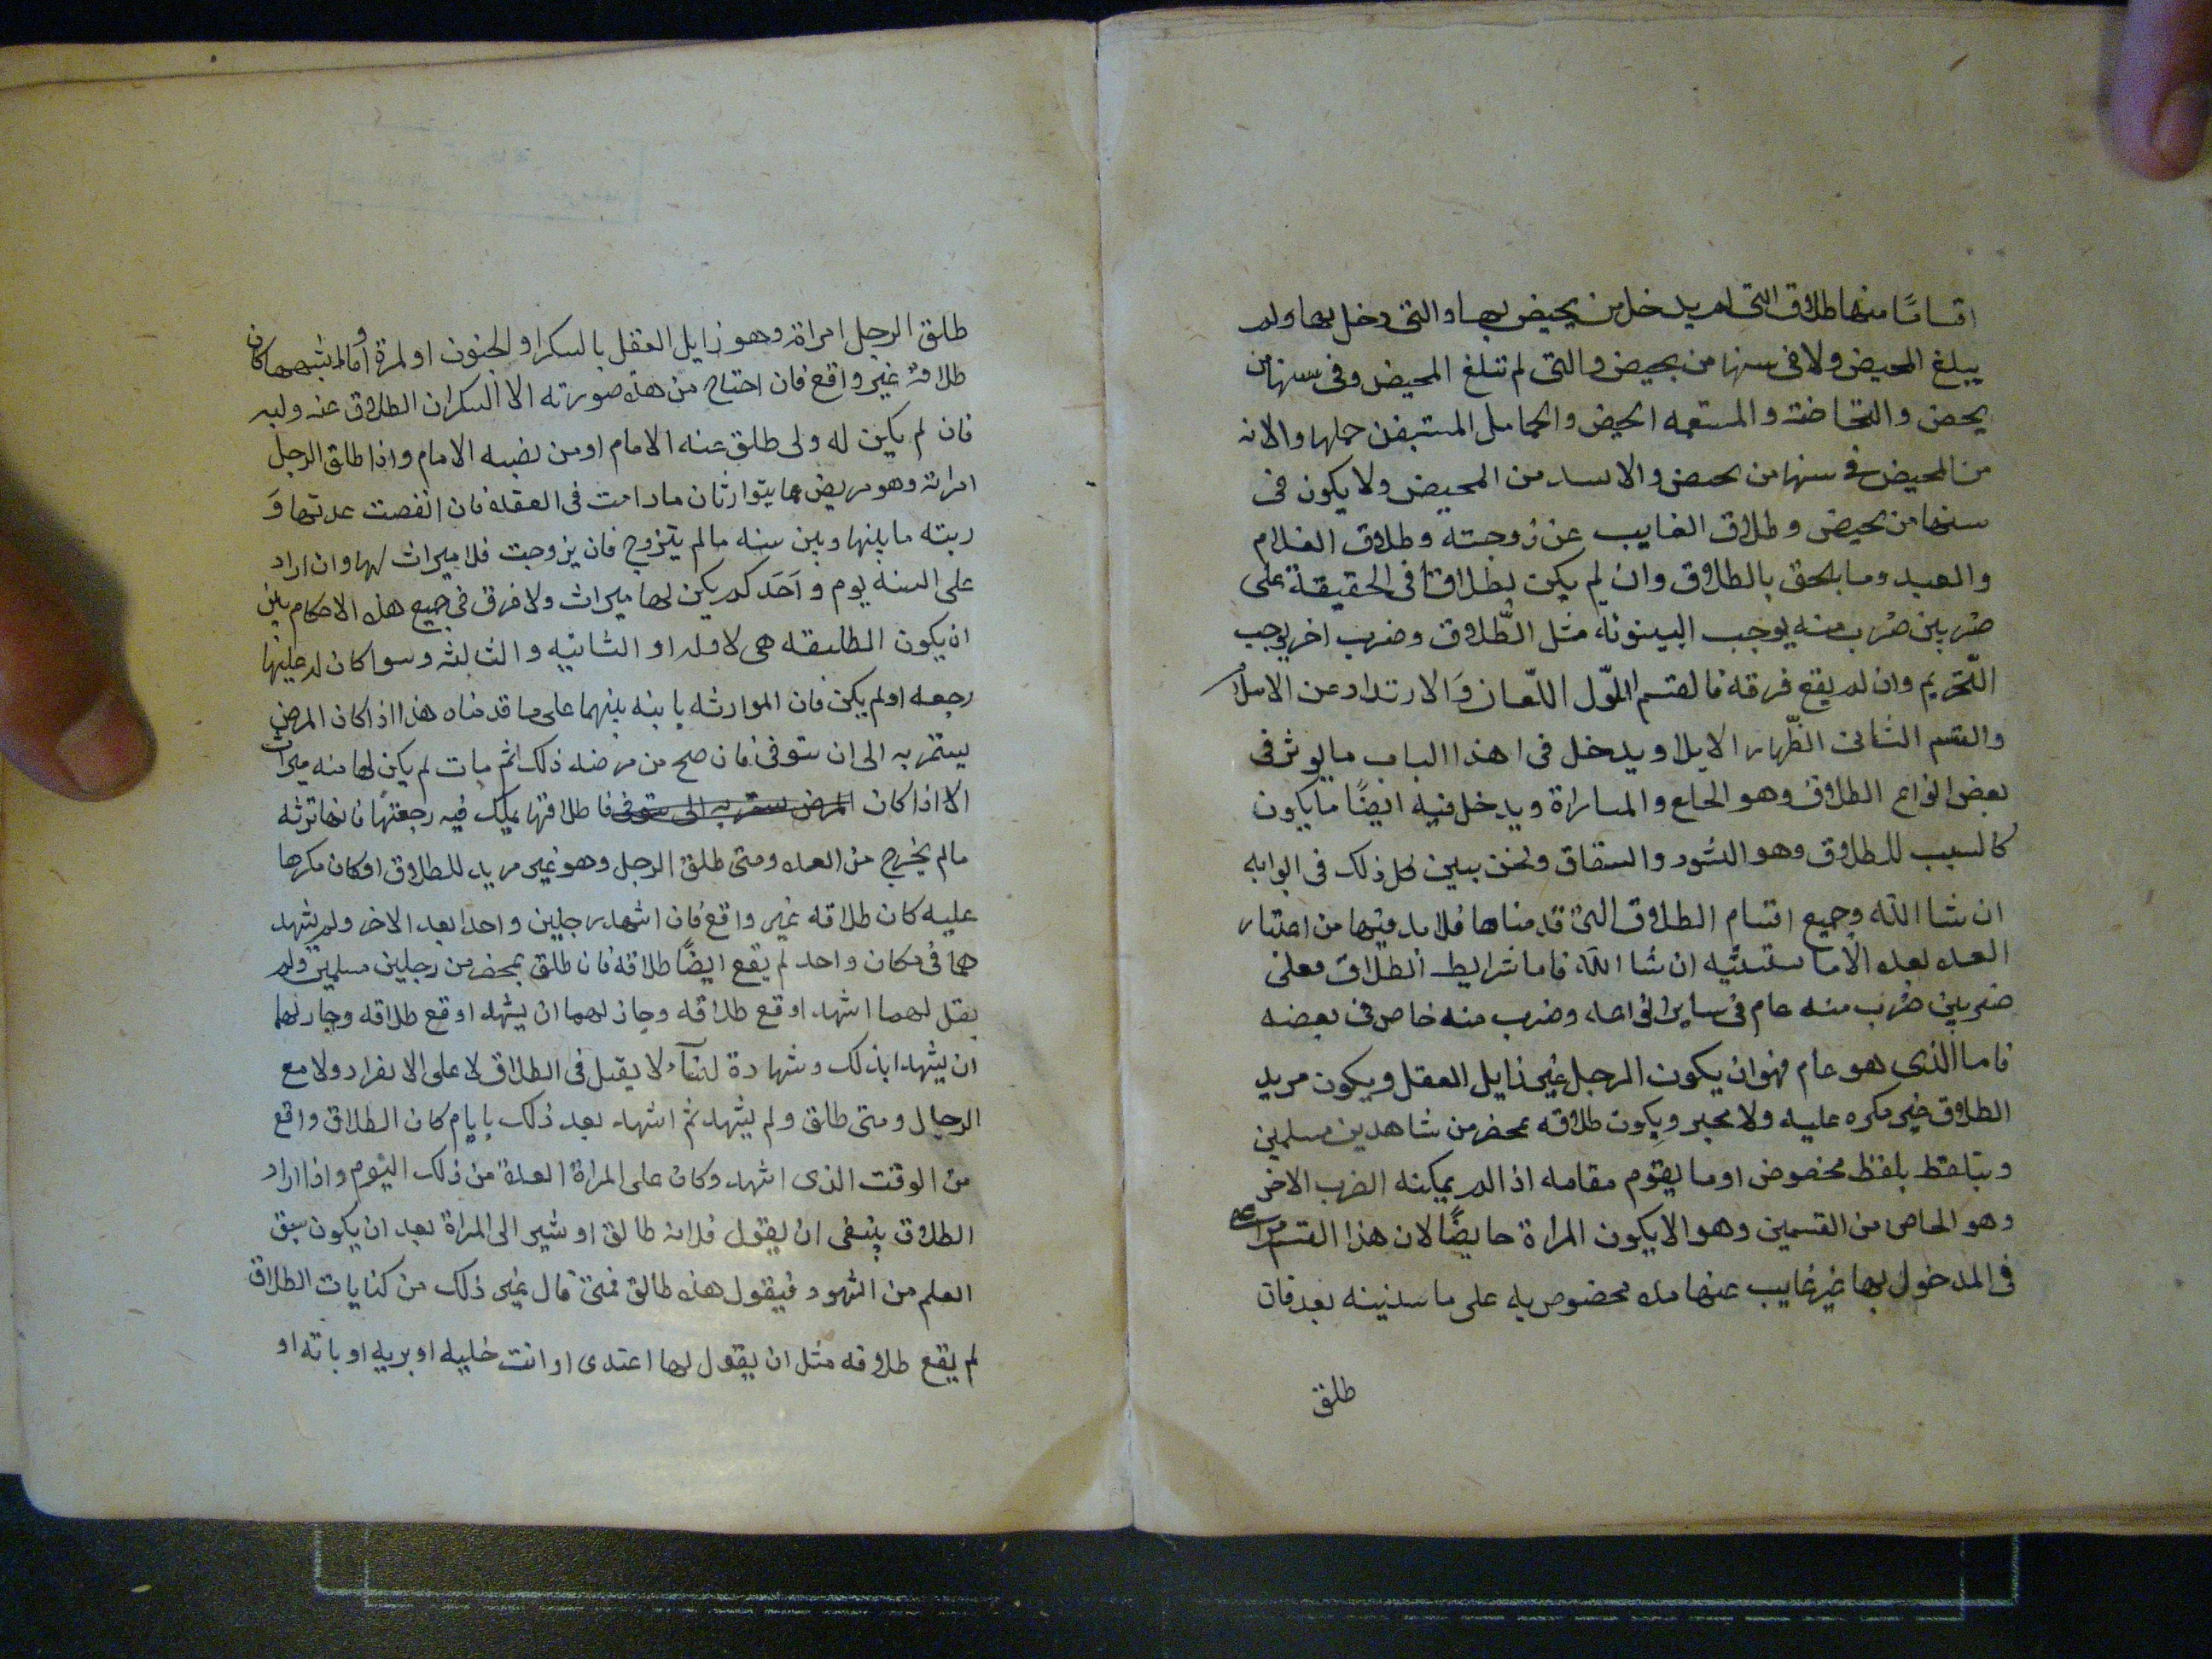 اقسامًا منها طلاق التى لم يدخل من يحيض بها والتى دخل بها ولم
يبلغ المحيض ولا فى سنها من يحيض والتى لم تبلغ المحيض وفى سنها من
يحض والمستقيمه الحيض والحامل المستبين حملها والانه
من المحيض فى سنها من يحيض والايسه من المحيض ولا يكون فى
سنها من يحيض وطلاق الغايب عن زوجته وطلاق الغلام
والعبيد وما يلحق بالطلاق وان لم يكن بطلاق فى الحقيقة على
ضربين ضرب منه يوجب البينونة مثل الطّلاق وضرب اخر يوجب
التّحريم وان لم يقع فرقه فالقسم الاوّل اللّعان وَالارتداد عن الاسلام
والقسم الثانى الظّهار الايلا ويدخل فى هذا الباب ما يوثر فى
بعض انواع الطلاق وهو الخلع والمباراة ويدخل فيه ايضًا ما يكون
كالسبب للطلاق وهو النشوز والشقاق ونحن نبين كل ذلك فى ابوابه
ان شا الله وجميع اقسام الطلاق التى قدمناها فلا بد فيها من اعتبار
العده بعده الا ما سنبينه ان شا اللّه فاما شرايط الطلاق فعلى
ضربين ضرب منه عام فى ساير انواعه وضرب منه خاص فى بعضه
فاما الذى هو عام فهو ان يكون الرجل غير زايل العقل ويكون مريد
الطلاق غير مكره عليه ولا مجبر ويكون طلاقه بمحضر من شاهدين مسلمين
ويتلفظ بلفظ مخصوص او ما يقوم مقامه اذا لم يمكنه الضرب الاخر
وهو الخاص من القسمين وهو الا يكون المراة حايضًا لان هذا القسم مراعى
فى المدخول بها غير غايب عنها مده مخصوص به على ما سنبينه بعد فان
طلق
طلق الرجل امراة وهو زايل العقل بالسكر او الجنون او لمرة وما اشبهها كان
طلاقه غير واقع فان احتاج من هذه صورته الا السكران الطلاق عنه وليه
فان لم يكن له ولى طلق عنه الامام او من نصبه الامام واذا طلق الرجل
امراته وهو مريض فهما يتوارثان ما دامت فى العقده فان انقضت عدتها وَ
ربته ما بينها وبين سنه مالم يتزوج فان يزوجت فلا ميراث لها وان اراد
على السنه يوم وَاحَد لم يكن لها ميراث ولا فرق فى جميع هذه الاحكام بين
ان يكون الطليقه هى لاوله او الثانيه والثالثه وسوا كان له عليها
رجعه او لم يكن فان الموارثه بابنه بينهما على ما قدمناه هذا اذا كان المرض
يستمر به الى ان يتوفى فان صح من مرضه ذلك ثم مات لم يكن لها منه ميراث
الا اذا كان المرض يستقر به الى يتوفى فا طلاقها يملك فيه رجعتها فانها ترثه
مالم يخرج من العده ومتى طلق الرجل وهو غير مريد للطلاق او كان مكرها
عليه كان طلاقه غير واقع فان اشهد رجلين واحدا بعد الاخر ولم يشهد
هما فى مكان واحد لم يقع ايضًا طلاقه فان طلق بمحضر من رجلين مسلمين ولم
يقل لهما اشهدا وقع طلاقه وجاز لهما ان يشهدا وقع طلاقه وجاز لهما
ان يشهدا بذلك وشهادة لنسآء لا يقبل فى الطلاق لا على الانفراد ولا مع
الرجال ومتى طلق ولم يشهد ثم اشهد بعد ذلك بايام كان الطلاق واقع
من الوقت الذى اشهد وكان على المراة العدة من ذلك اليوم واذا اراد
الطلاق ينبغى ان يقول فلانه طالق او شير الى المراة بعد ان يكون سبق
العلم من الشهود فيقول هذه طالق فمتى قال غير ذلك من كنايات الطلاق
لم يقع طلاقه مثل ان يقول لها اعتدى او انت خليه او بريه او باته او